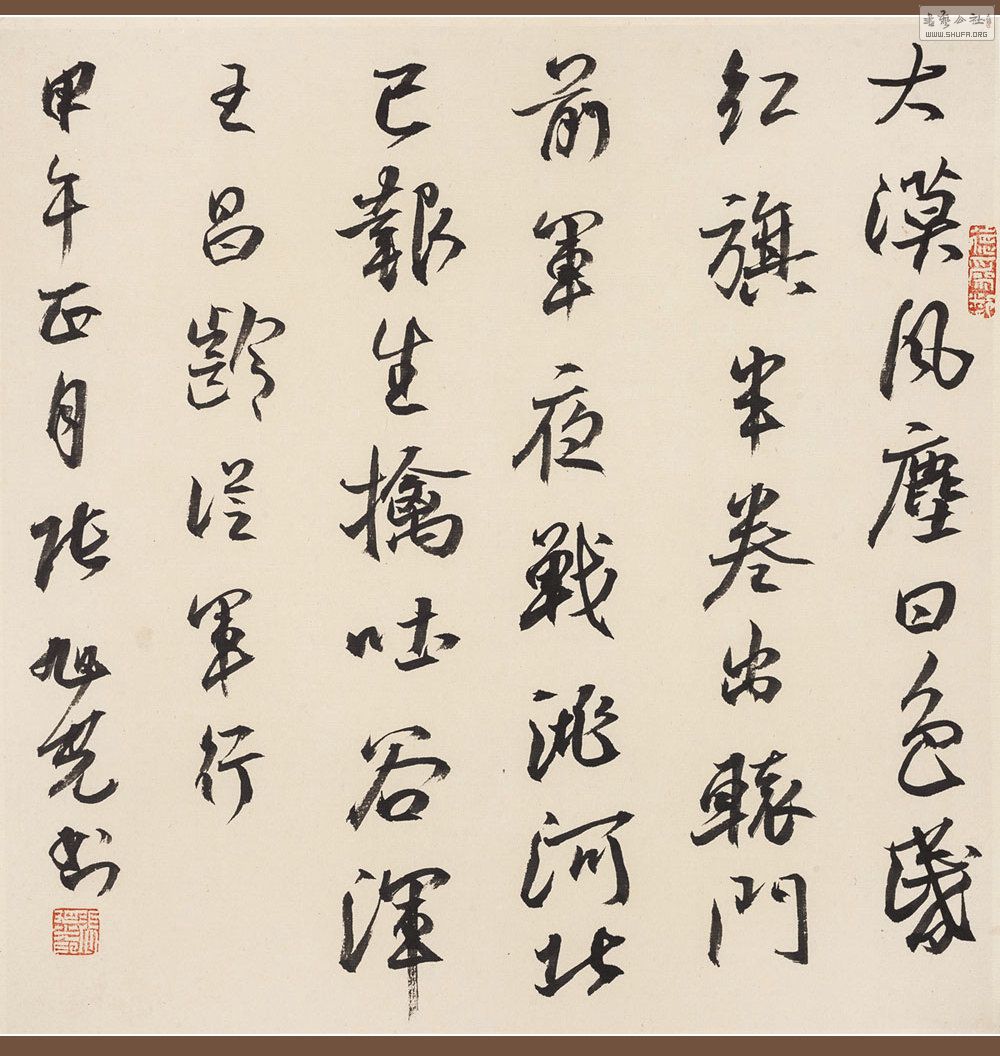 大漠風塵日色昏
紅旗半卷出轅門
前軍夜戰洮河北
已報生擒吐谷渾
王昌齡從軍行
甲午正月張旭光書
書藝公社
WWW.SHUFA.ORG